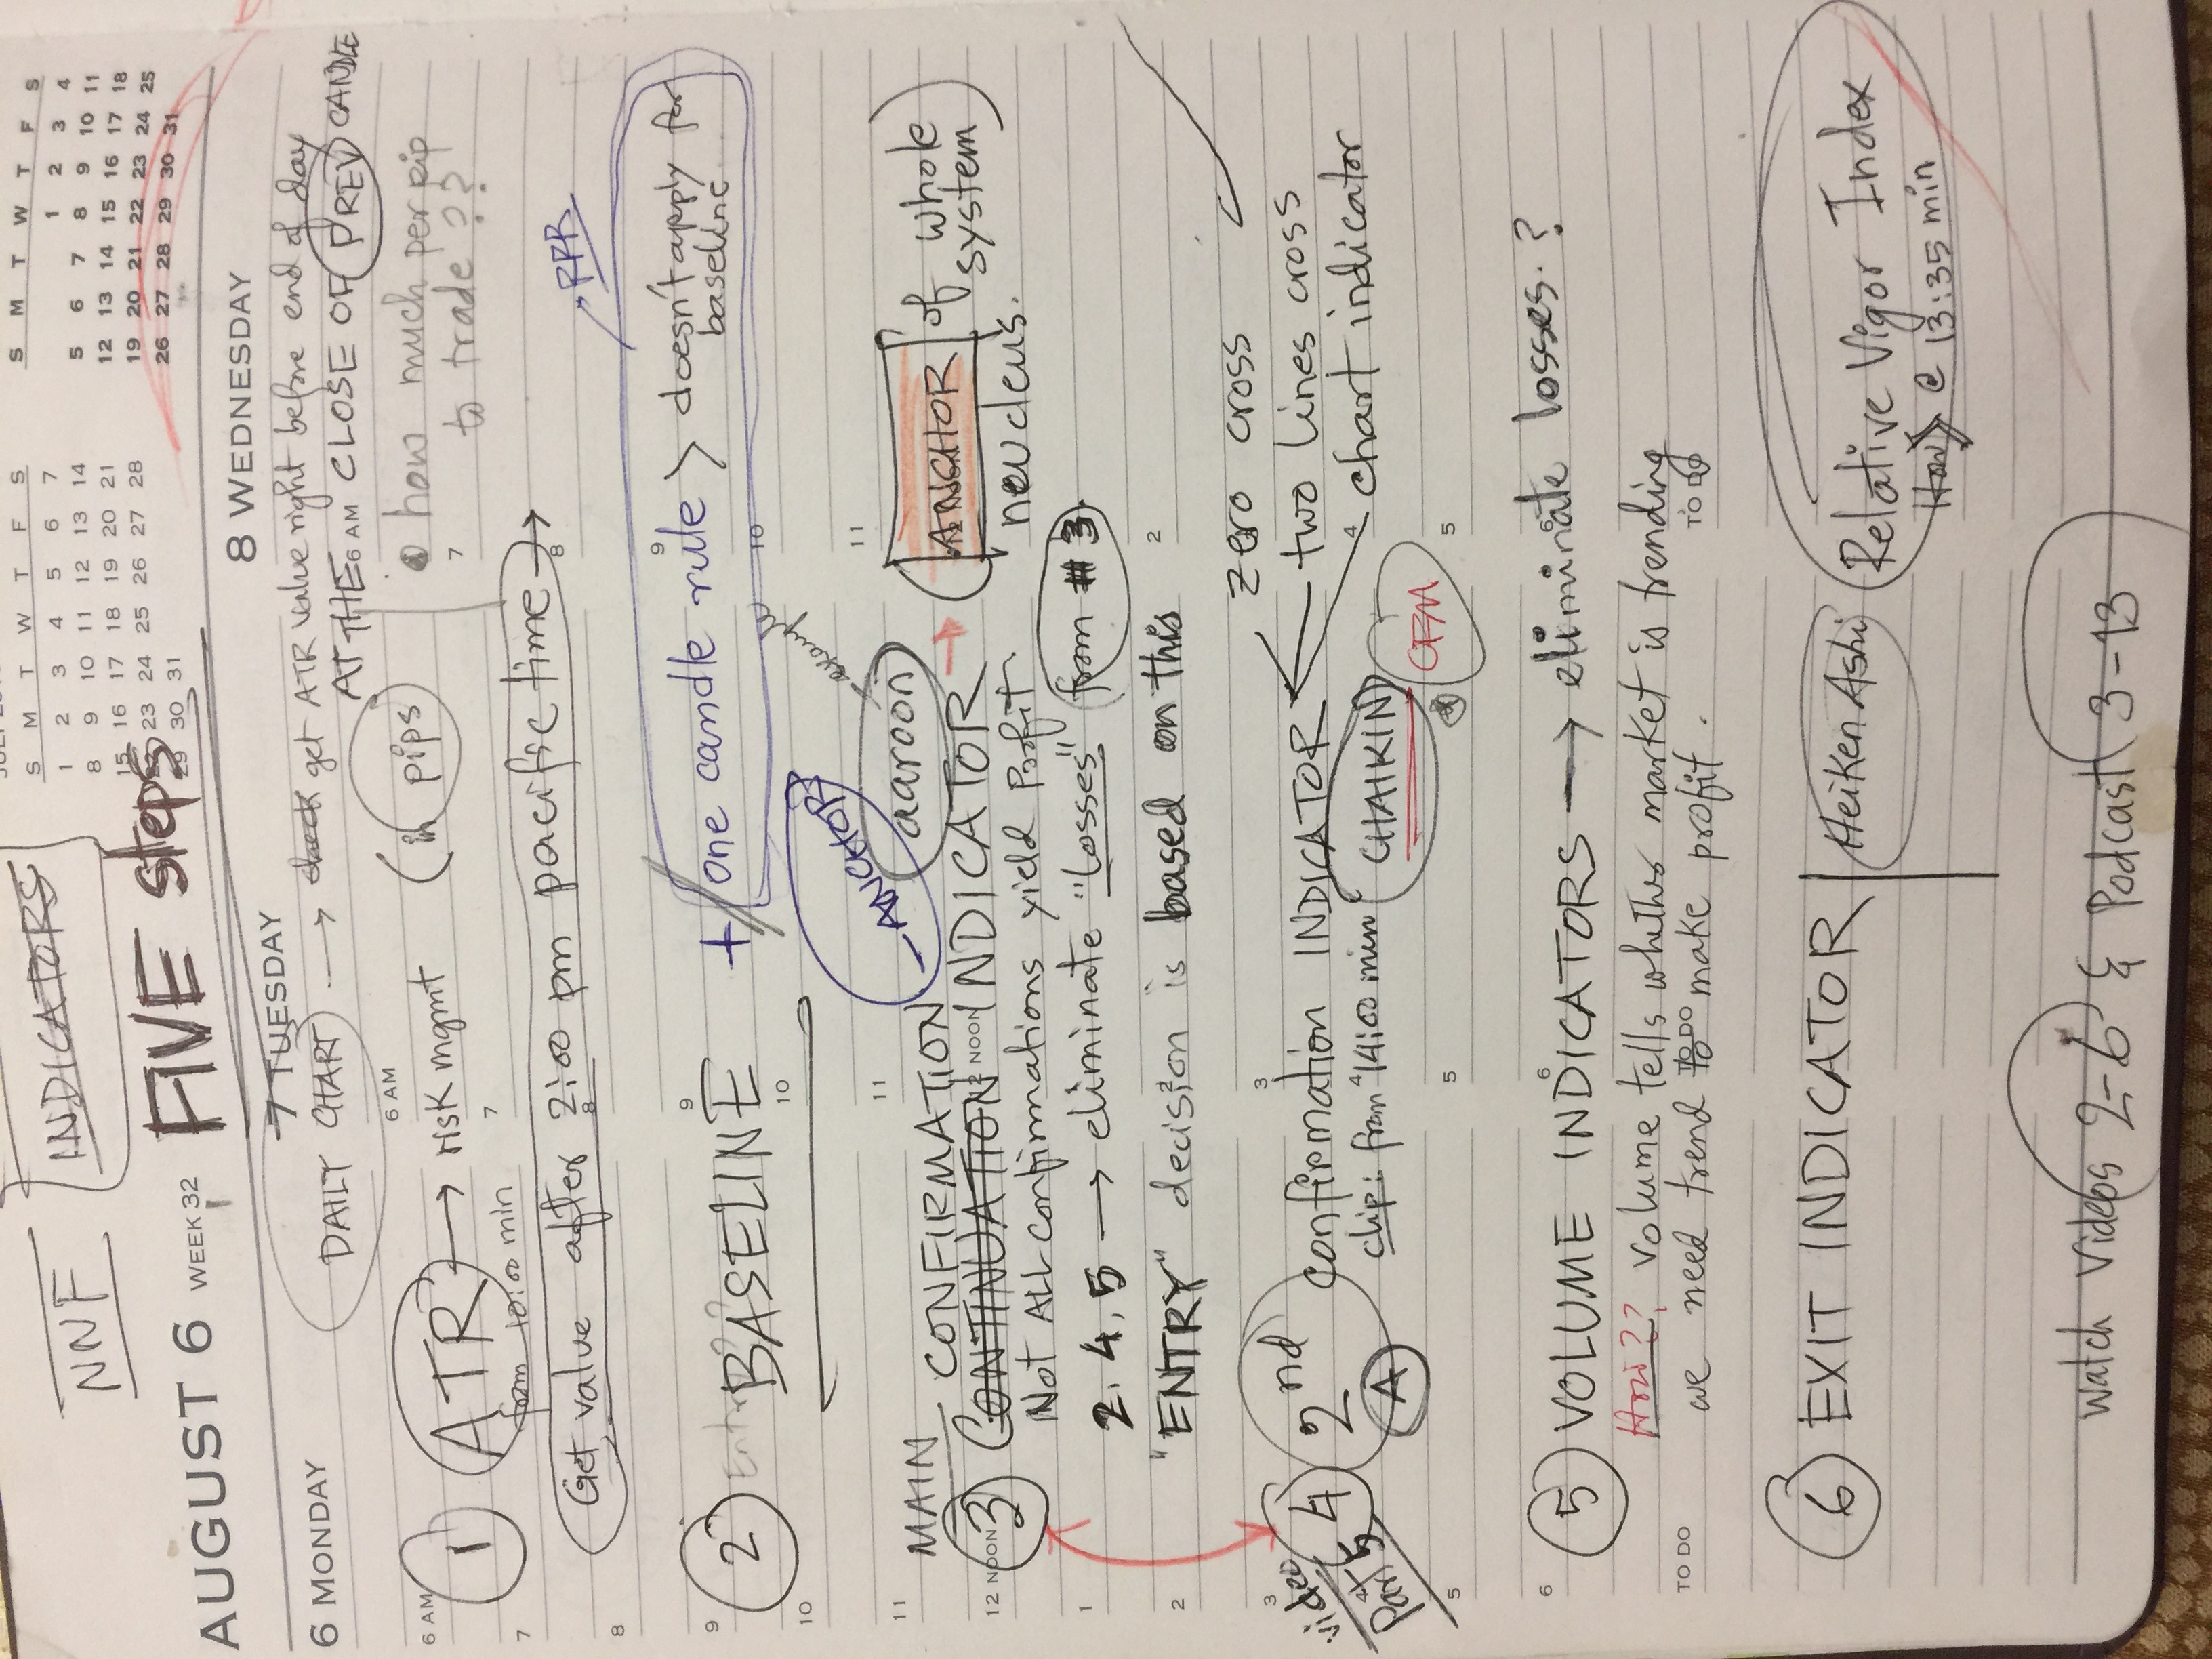 NNF INDICATORS
S M T W T F S
1 2 3 4 5 6 7
8 9 10 11 12 13 14
15 16 17 18 19 20 21
23 24 25 26 27 28
29 30 31
S M T W T F S
1 2 3 4
5 6 7 8 9 10 11
12 13 14 15 16 17 18
19 20 21 22 23 24 25
26 27 28 29 30 31
AUGUST 6 WEEK 32 FIVE steps
6 MONDAY
7 TUESDAY
8 WEDNESDAY
DAILY CHART → check get ATR value right before end of day
AT THE CLOSE OF PREV CANDLE
1 ATR → risk mgmt (in pips
how much per pip
to trade ??
from 10:00 min
Get value after 2:00 pm pacific time →
RRR
2 Entry?? BASELINE + one candle rule > doesn't apply for
baseline
ANCHOR
aaroon – example
MAIN CONFIRMATION
3 CONTINUATION INDICATOR → (ANCHOR of whole
system)
neucleus.
Not ALL confirmations yield Profit
2, 4, 5 → eliminate "losses" from # 3.
"ENTRY" decision is based on this
zero cross
video Part 5
4 2nd confirmation INDICATOR two lines cross
chart indicator
A clip: from 14:00 min CHAIKIN
CFM
5 VOLUME INDICATORS → eliminate losses. ?
How?? volume tells whether market is trending
we need trend to make profit.
6 EXIT INDICATOR | Heiken Ashi Relative Vigor Index
How @ 13:35 min
Watch Videos 2-6 & Podcast 3-13
6 AM
7
8
9
10
11
12 NOON
1
2
3
5
6
TO DO
6 AM
7
8
9
10
11
12 NOON
2
3
4
5
6
TO DO
6 AM
7
8
9
10
11
2
4
5
6
TO DO